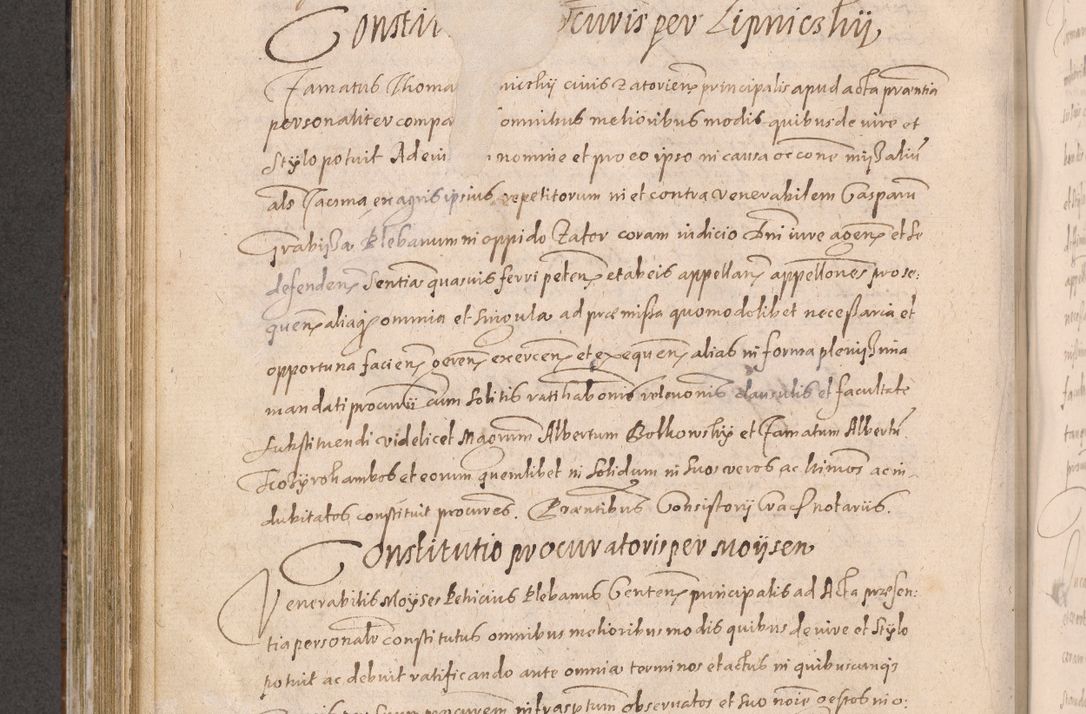 Constit curis per Lipnicshÿ
Famatus Thoma nicshÿ civis Zatorien principalis apud acta præntia
personaliter compa omnibus melioribus modis quibus de iure et
Stÿlo potuit Ad eui nomine et pro eo ipso in causa et cone mißaliū
als Tacsma ex agris ipsius repetitorum in et contra venerabilem Gasparū
Grabißa Plebanum in oppido Zator coram iudicio Dni iure agen et se
defenden Sentia quasvis ferri peten et ab eis appellan appellones prose:
quen aliaq omnia et singula ad præmissa quomodolibet necessaria et
opportuna facien geren exercen et exequen alias in forma plenißima
mandati procurii cum solitis ratihabonis relevonis clausulis et facultate
substituendi videlicet Magrum Albertum Bolkowshÿ et Famatum Albertū
ambos et eorum quemlibet in solidum in suos veros ac ltimos ac in
dubitatos constituit procures. Præntibus Consistorÿ Cra notariis.
Constitutio procuratoris per Moÿsen
Venerabilis Moÿses Plebanus Genten principalis ad Acta præsen:
tia personalr constitutus omnibus melioribus modis quibus de iure et Stÿlo
potuit ac debuit ratificando ante omnia terminos et actus in quibuscunqs
procurem infrascptum observatos et suo noie gestos in o: